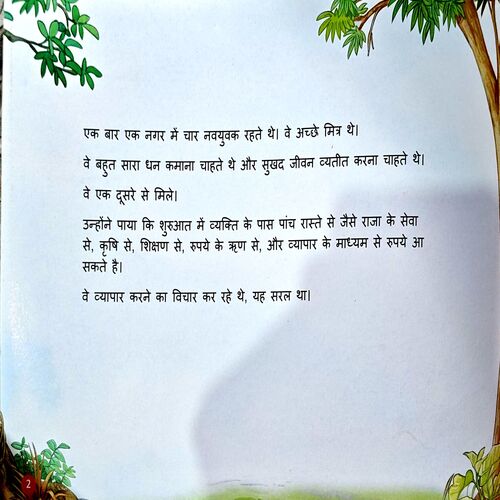 एक बार एक नगर में चार नवयुवक रहते थे। वे अच्छे मित्र थे।
वे बहुत सारा धन कमाना चाहते थे और सुखद जीवन व्यतीत करना चाहते थे।
वे एक दूसरे से मिले।
उन्होंने पाया कि शुरुआत में व्यक्ति के पास पांच रास्ते से जैसे राजा के सेवा
से, कृषि से, शिक्षण से, रुपये के ऋण से, और व्यापार के माध्यम से रुपये आ
सकते है।
वे व्यापार करने का विचार कर रहे थे, यह सरल था।
2